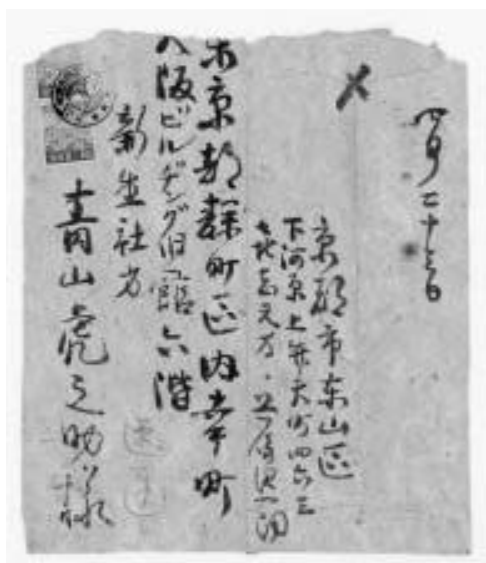 四月二十三日
京都市東山区
下河原上弁天町四六三
谷崎潤一郎
東京都麹町区内幸町
大阪ビルヂング旧館六階
新生社方
青山虎之助様
速達